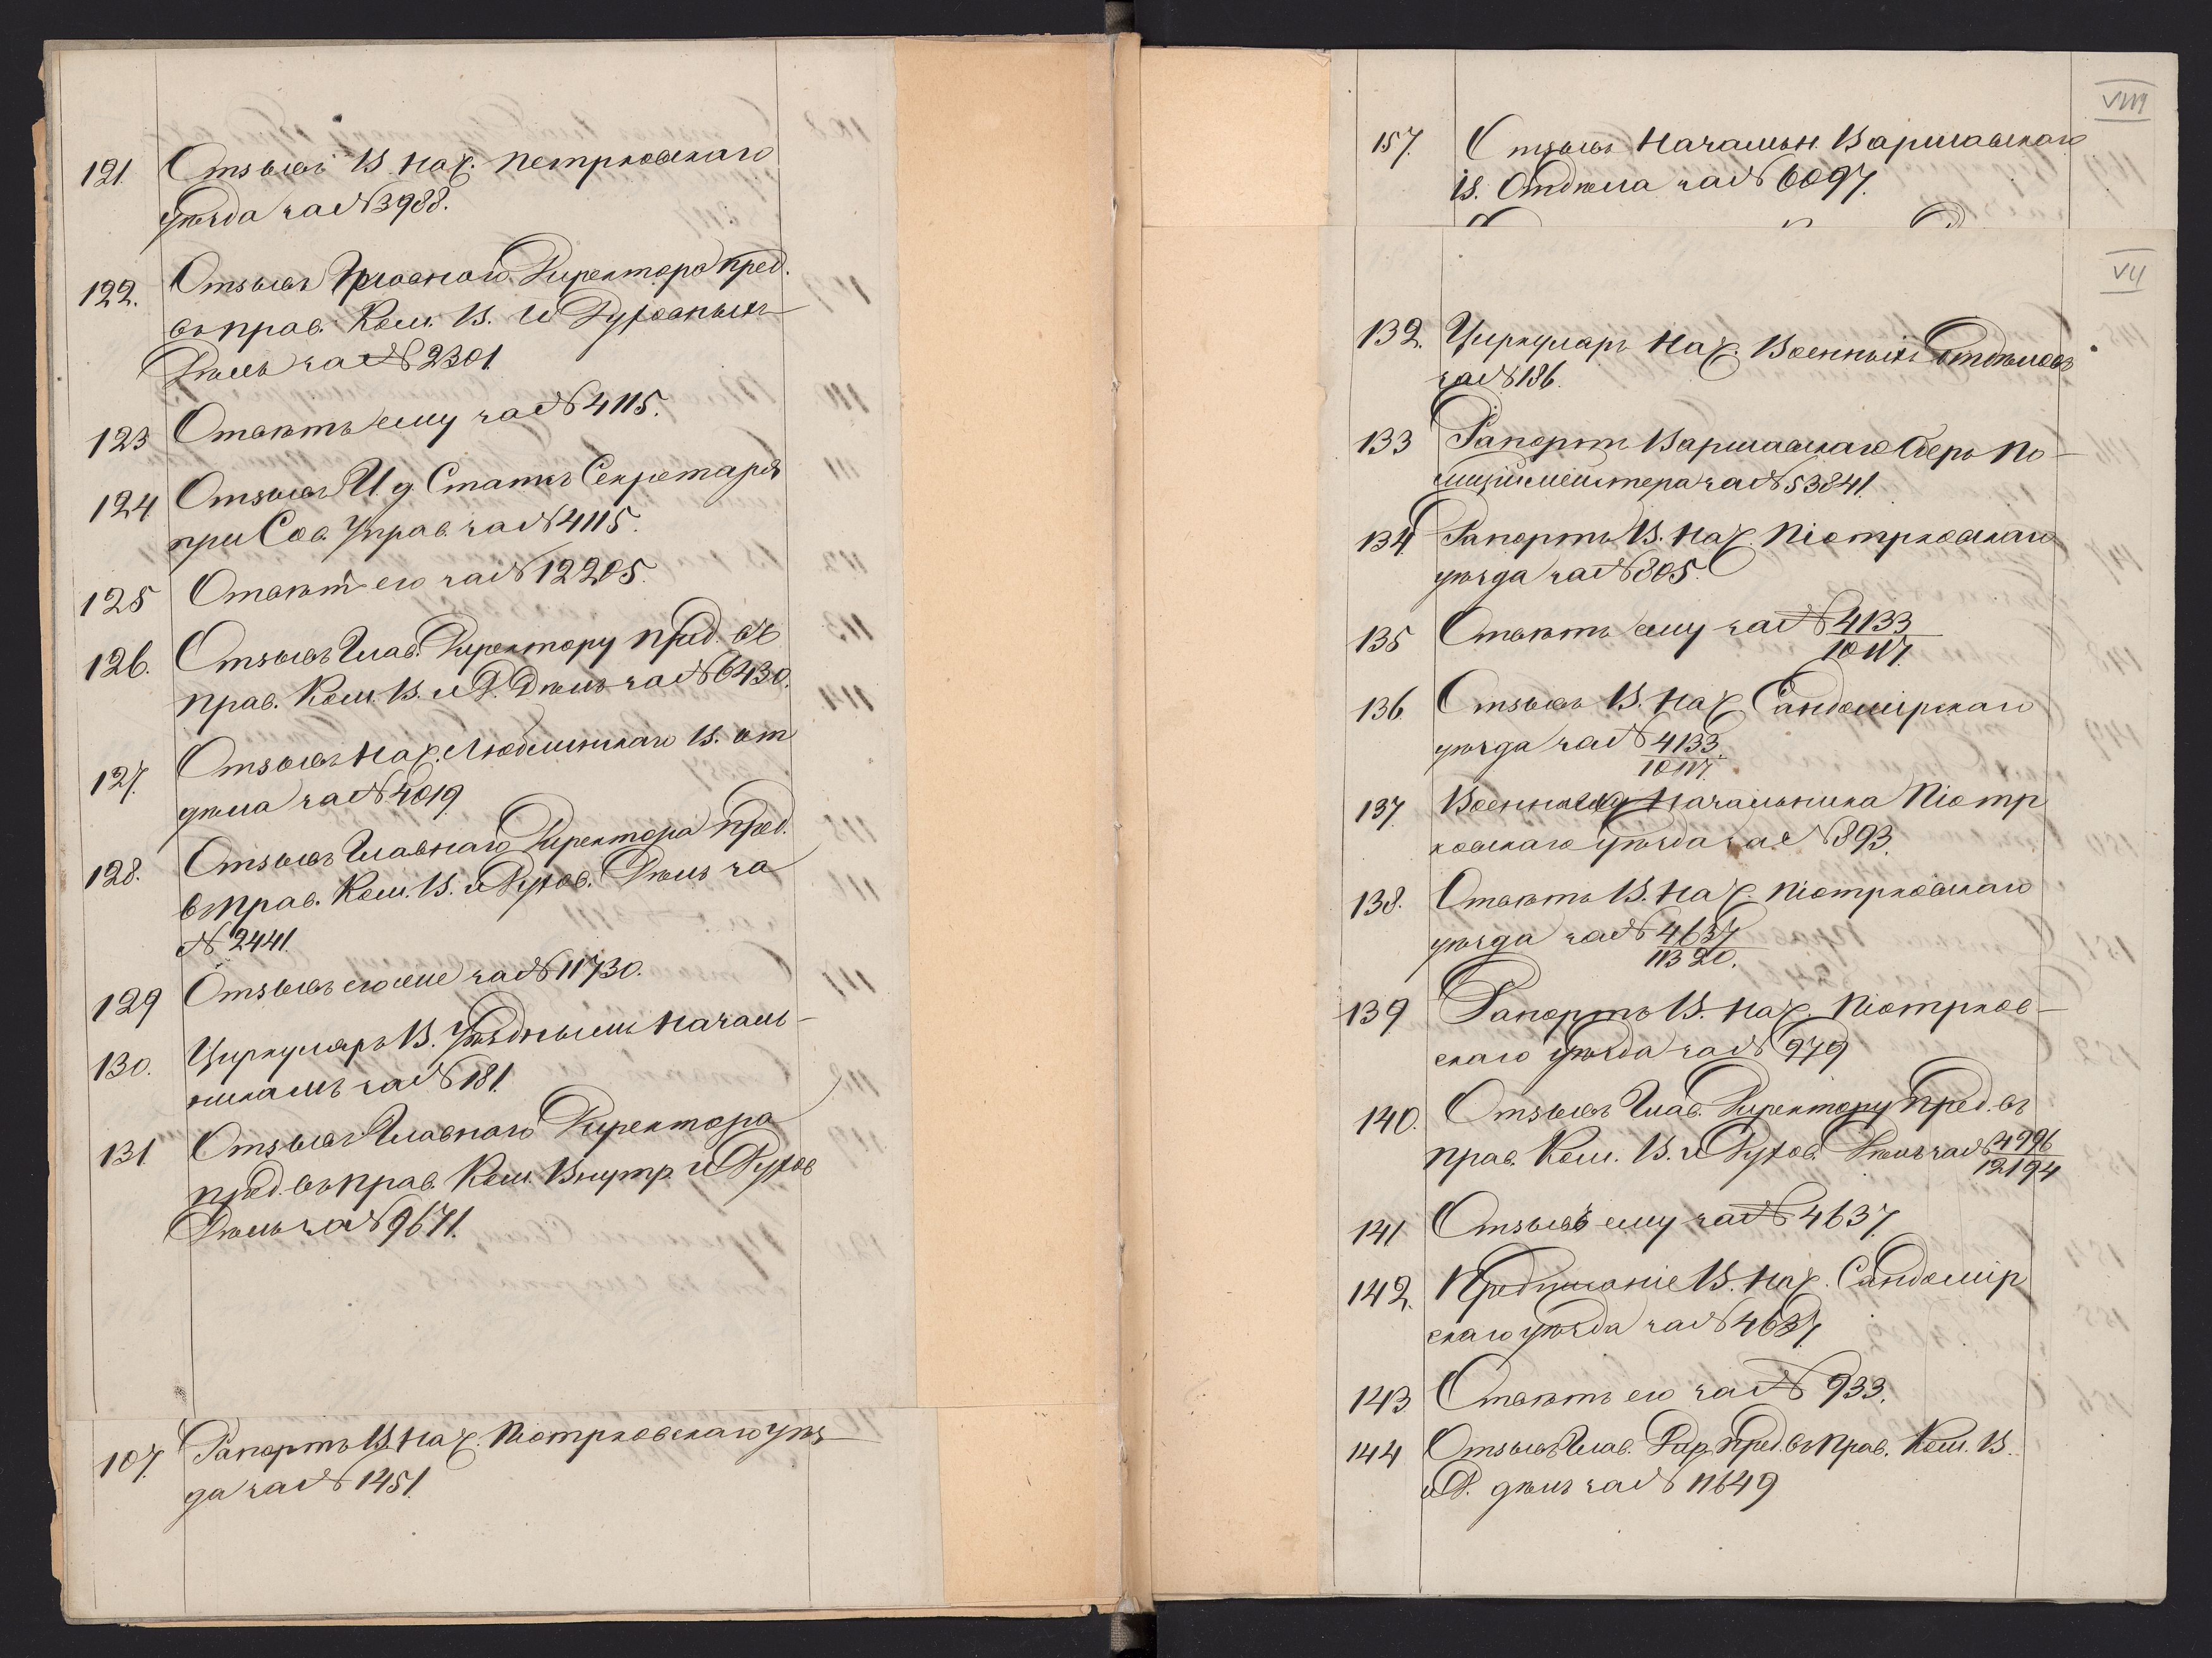 121. Отзывъ В. Нач. Петрковскаго
уѣзда за № 3988.
122. Отзывъ Главнаго Директора Пред.
въ прав. Ком. В. и Духовныхъ
Дѣлъ за № 2301.
123 Отвѣтъ ему за № 4115.
124 Отзывъ И д Статсъ Секретаря
при Сов. Управ. за № 4115.
125 Отвѣтъ его за № 12205.
126. Отзывъ Глав. Директору Пред. въ
Прав. Ком. В. и Д. Дѣлъ за № 6430.
127. Отзывъ Нач. Люблинскаго В. от
дѣла за № 4019
128. Отзывъ Главнаго Директора Пред.
въ Прав. Ком. В. и Духов. Дѣлъ за
№ 2441.
129 Отзывъ его же за № 11730.
130. Циркуляръ В. Уѣзднымъ Началь-
никамъ за № 181.
131 Отзывъ Главнаго Директора
Пред. въ Прав. Ком. Внутр. и Духов
Дѣлъ за № 9671.
107. Рапортъ В. Нач. Піотрковскаго уѣз-
да за № 1451.
VIII
157. Отзывъ Начальн. Варшавскаго
В. Отдѣла за № 6097.
VII
132. Циркуляръ Нач. Военныхъ Отдѣловъ
за № 186.
133 Рапортъ Варшавскаго Оберъ По-
лицiймейстера за № 53841.
134. Рапортъ В. Нач. Піотрковскаго
уѣзда за № 805.
135 Отвѣтъ ему за № 4133
10117.
136. Отзывъ В. Нач. Сандомірскаго
уѣзда за № 4133.
10117.
137. Начальника Піотр
ковскаго уѣзда за № 893.
138. Отвѣтъ В. Нач. Піотрковскаго
уѣзда за № 4637
11320.
139. Рапортъ В. Нач. Піотрков-
скаго уѣзда за № 979
140. Отзывъ Глав. Директору Пред. въ
Прав. Ком. В. и Духов. Дѣлъ за № 4996
12194
141 Отзывъ ему за № 4637.
142. Предписаніе В. Нач. Сандомір
скаго уѣзда за № 4637.
143 Отвѣтъ его за № 933.
144 Отзывъ Глав. Дир. Пред. въ Прав. Ком. В.
и Д. дѣлъ за № 11649